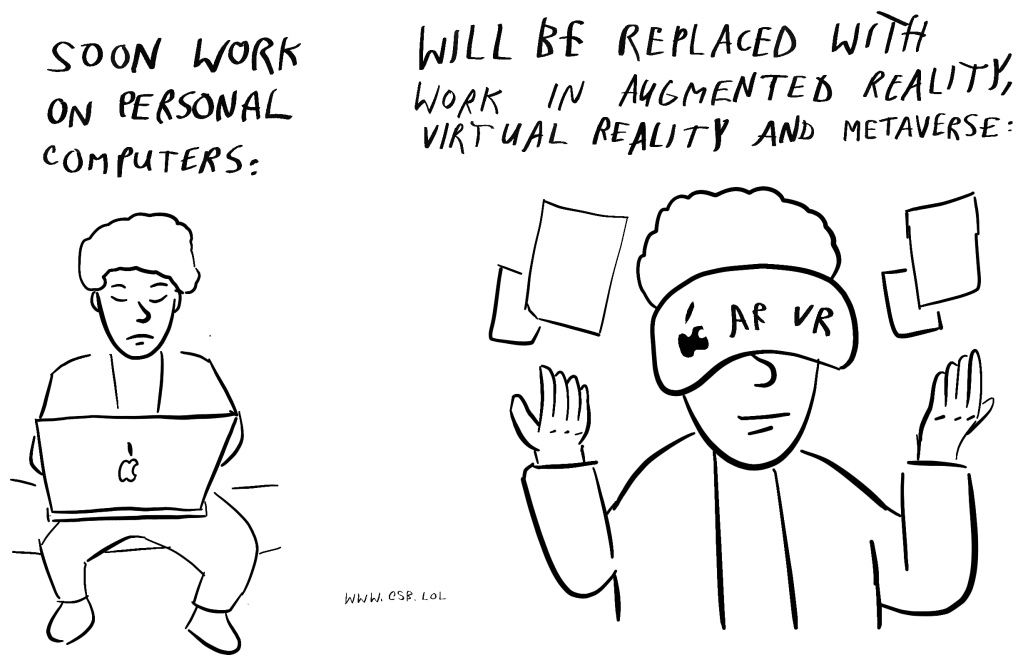 SOON WORK
ON PERSONAL
COMPUTERS:
WILL BE REPLACED WITH
WORK IN AUGMENTED REALITY,
VIRTUAL REALITY AND METAVERSE:
AR VR
WWW.CSB.LOL